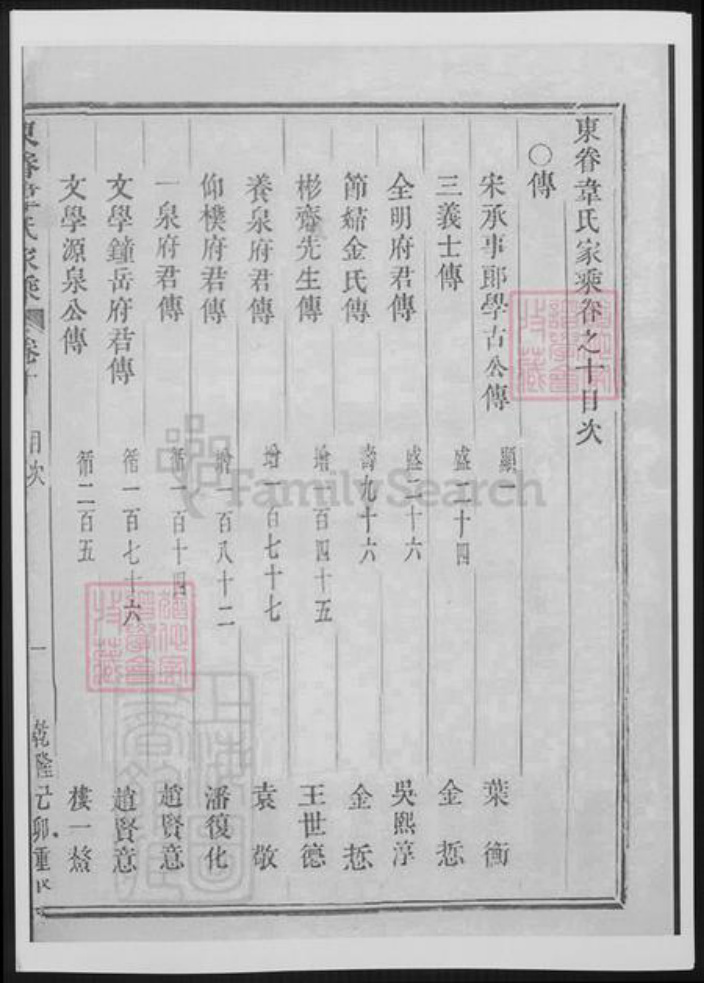 東眷韋氏家乘卷之十目次
○傳
宋承事郎學古公傳 顯一 葉衡
三義士傳 盛二十四 金悊
全明府君傳 盛二十六 吳熙淳
節婦金氏傳 壽九十六 金悊
彬齋先生傳 增一百四十五 王世德
養泉府君傳 增一百七十七 袁敬
仰樸府君傳 增一百八十二 潘復化
一泉府君傳 衍一百十四 趙賢意
文學鐘岳府君傳 一百七十六 趙賢意
文學源泉公傳 二百五 樓一
東眷韋氏家乘 卷十 目次 一 乾隆己卯重
FamilySearch